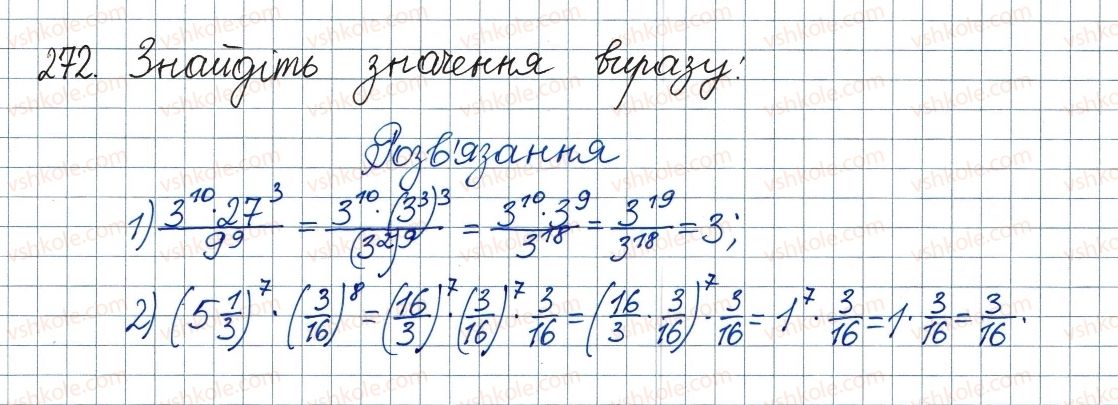 272. Знайдіть значення виразу:
Розв'язання
1) \frac{3^{10} \cdot 27^3}{9^9} = \frac{3^{10} \cdot (3^3)^3}{(3^2)^9} = \frac{3^{10} \cdot 3^9}{3^{18}} = \frac{3^{19}}{3^{18}} = 3;
2) (5\frac{1}{3})^7 \cdot (\frac{3}{16})^8 = (\frac{16}{3})^7 \cdot (\frac{3}{16})^7 \cdot \frac{3}{16} = (\frac{16}{3} \cdot \frac{3}{16})^7 \cdot \frac{3}{16} = 1^7 \cdot \frac{3}{16} = 1 \cdot \frac{3}{16} = \frac{3}{16}.